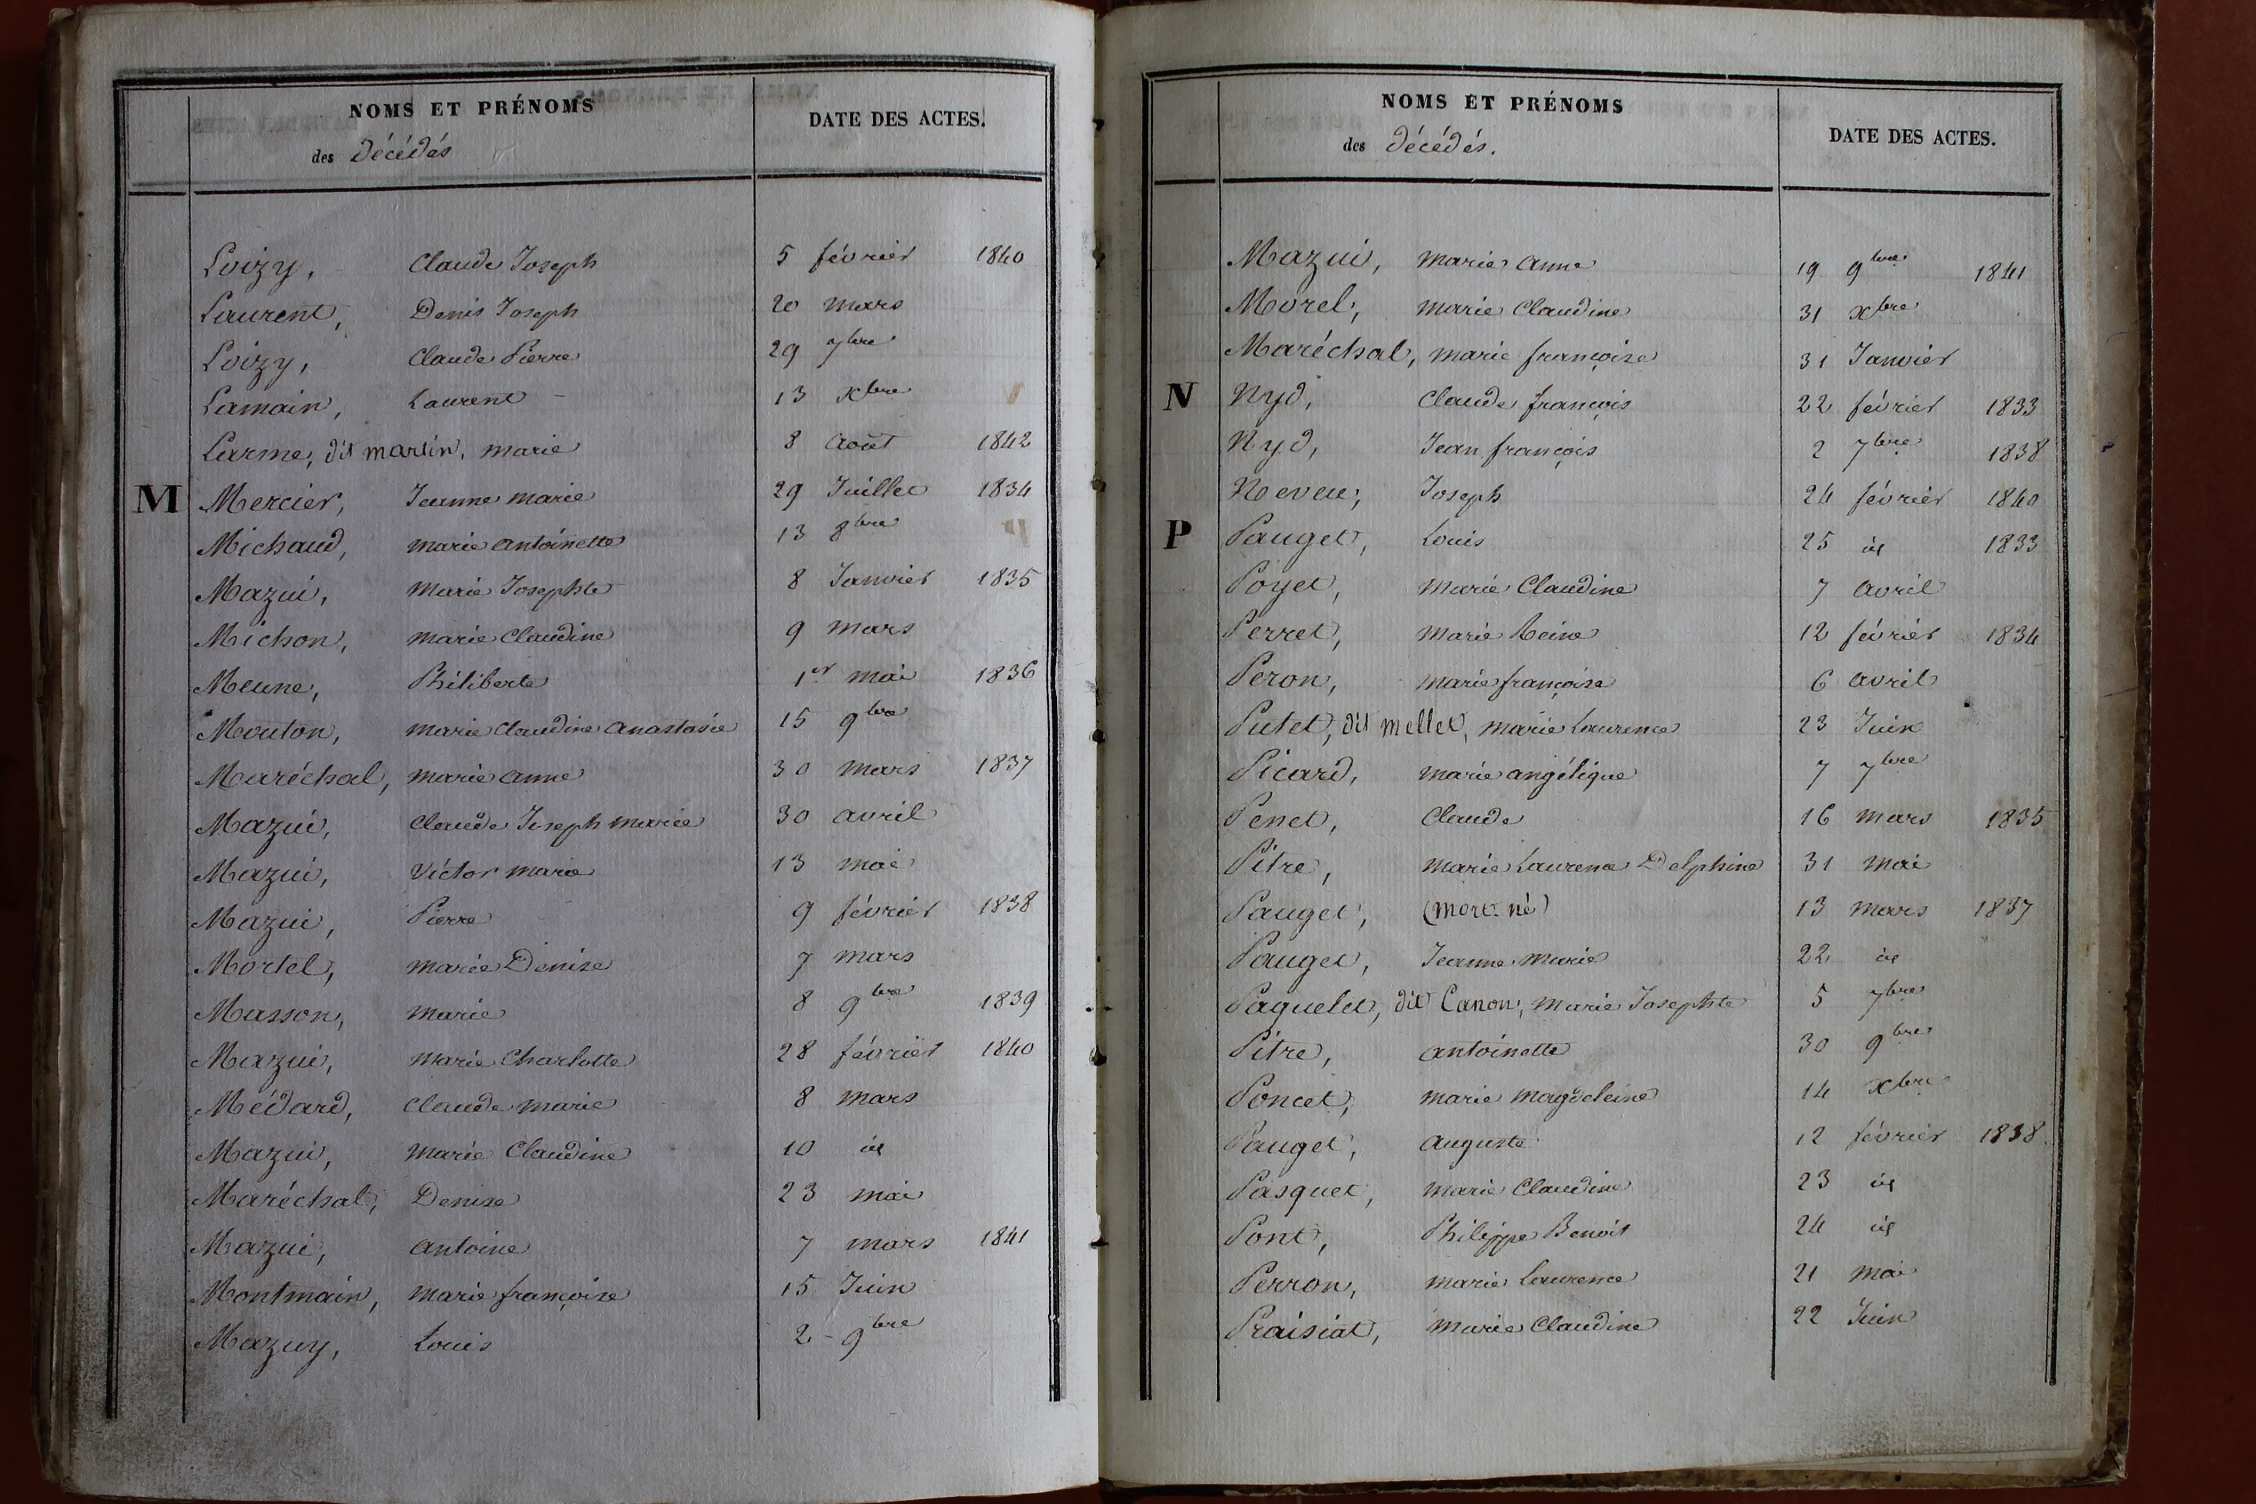 NOMS ET PRÉNOMS
des décédés
DATE DES ACTES.
Loizy, Claude Joseph 5 février 1840
Laurent, Denis Joseph 20 mars
Loizy, Claude Pierre 29 7bre
Lamain, Laurent 13 Xbre
Larme, dit martin, marie 8 août 1842
M Mercier, Jeanne marie 29 Juillet 1834
Michaud, marie antoinette 13 8bre
Mazui, Marie Josephte 8 Janvier 1835
Michon, marie Claudine 9 mars
Meune, Philiberte 1er mai 1836
Mouton, marie Claudine anastasie 15 9bre
Maréchal, marie anne 30 mars 1837
Mazui, Claude Joseph marie 30 avril
Mazui, Victor marie 13 mai
Mazui, Pierre 9 février 1838
Mortel, marie Denise 7 mars
Masson, marie 8 9bre 1839
Mazui, marie Charlotte 28 février 1840
Médard, Claude marie 8 mars
Mazui, marie Claudine 10 id
Maréchal, Denise 23 mai
Mazui, antoine 7 mars 1841
Montmain, marie françoise 15 Juin
Mazuy, Louis 2 9bre
NOMS ET PRÉNOMS
des décédés.
DATE DES ACTES.
Mazui, marie anne 19 9bre 1841
Morel, marie Claudine 31 Xbre
Maréchal, marie françoise 31 Janvier
N Nyd, Claude françois 22 février 1833
Nyd, Jean françois 2 7bre 1838
Neveu, Joseph 24 février 1840
P Pauget, Louis 25 id 1833
Poyet, Marie Claudine 7 avril
Perret, marie Reine 12 février 1834
Peron, marie françoise 6 avril
Putet, dit mellet, marie Laurence 23 Juin
Picard, marie angélique 7 7bre
Penet, Claude 16 mars 1835
Pitre, marie Laurence Delphine 31 mai
Pauget, (mort-né) 13 mars 1837
Pauget, Jeanne Marie 22 id
Paquelet, dit Canon, marie Josephte 5 7bre
Pitre, antoinette 30 9bre
Poncet, marie magdeleine 14 Xbre
Pauget, auguste 12 février 1838
Pasquet, marie Claudine 23 id
Pont, Philippe Benoit 24 id
Perron, marie Laurence 21 mai
Praisiat, marie Claudine 22 Juin